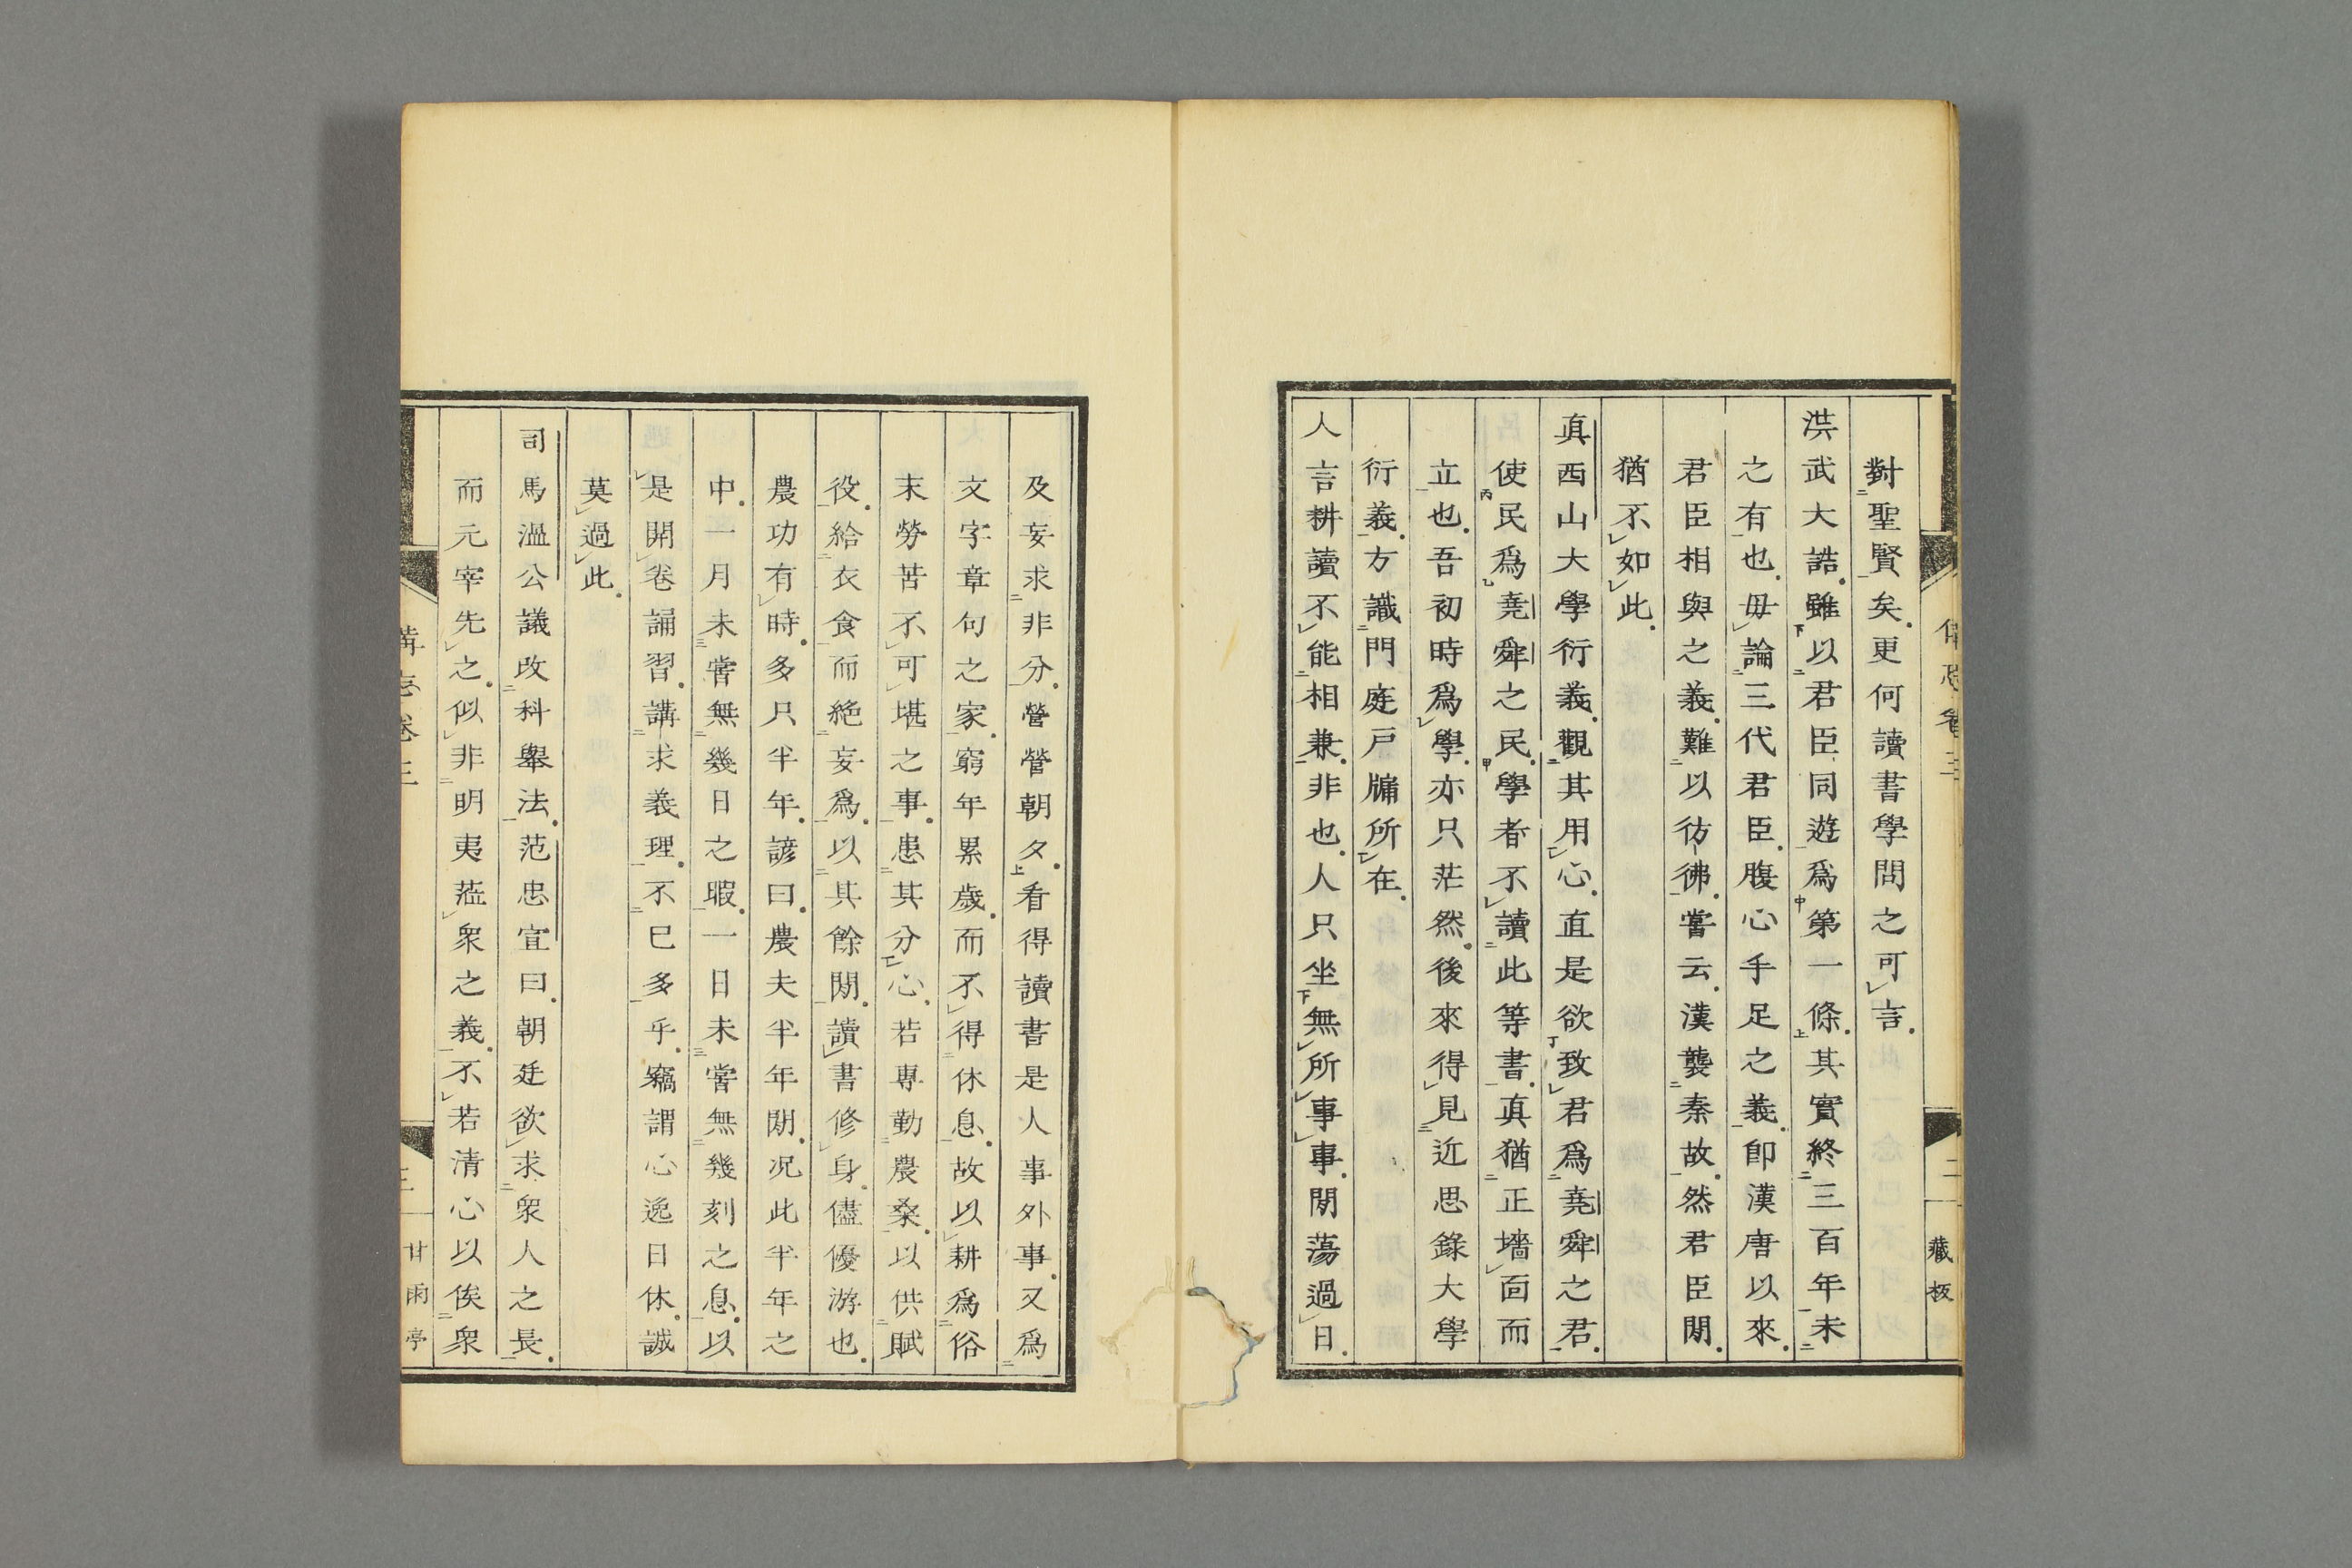 對聖賢矣更何讀書學問之可言
洪武大誥雖以君臣同遊爲第一條其實終三百年未
之有也毋論三代君臣腹心手足之義卽漢唐以來
君臣相與之義難以彷彿嘗云漢襲秦故然君臣閒
猶不如此
眞西山大學衍義觀其用心直是欲致君爲堯舜之君
使民爲堯舜之民學者不讀此等書眞猶正墻面而
立也吾初時爲學亦只茫然後來得見近思錄大學
衍義方識門庭戸牖所在
人言耕讀不能相兼非也人只坐無所事事閒蕩過日
及妄求非分營營朝夕看得讀書是人事外事又爲
文字章句之家窮年累歲而不得休息故以耕爲俗
末勞苦不可堪之事患其分心若專勤農桑以供賦
役給衣食而絶妄爲以其餘閒讀書修身儘優游也
農功有時多只半年諺曰農夫半年閒况此半年之
中一月未嘗無幾日之暇一日未嘗無幾刻之息以
是開卷誦習講求義理不已多乎竊謂心逸日休誠
莫過此
司馬溫公議改科舉法范忠宣曰朝廷欲求衆人之長
而元宰先之似非明夷蒞衆之義不若清心以俟衆
二
藏板
甘雨亭